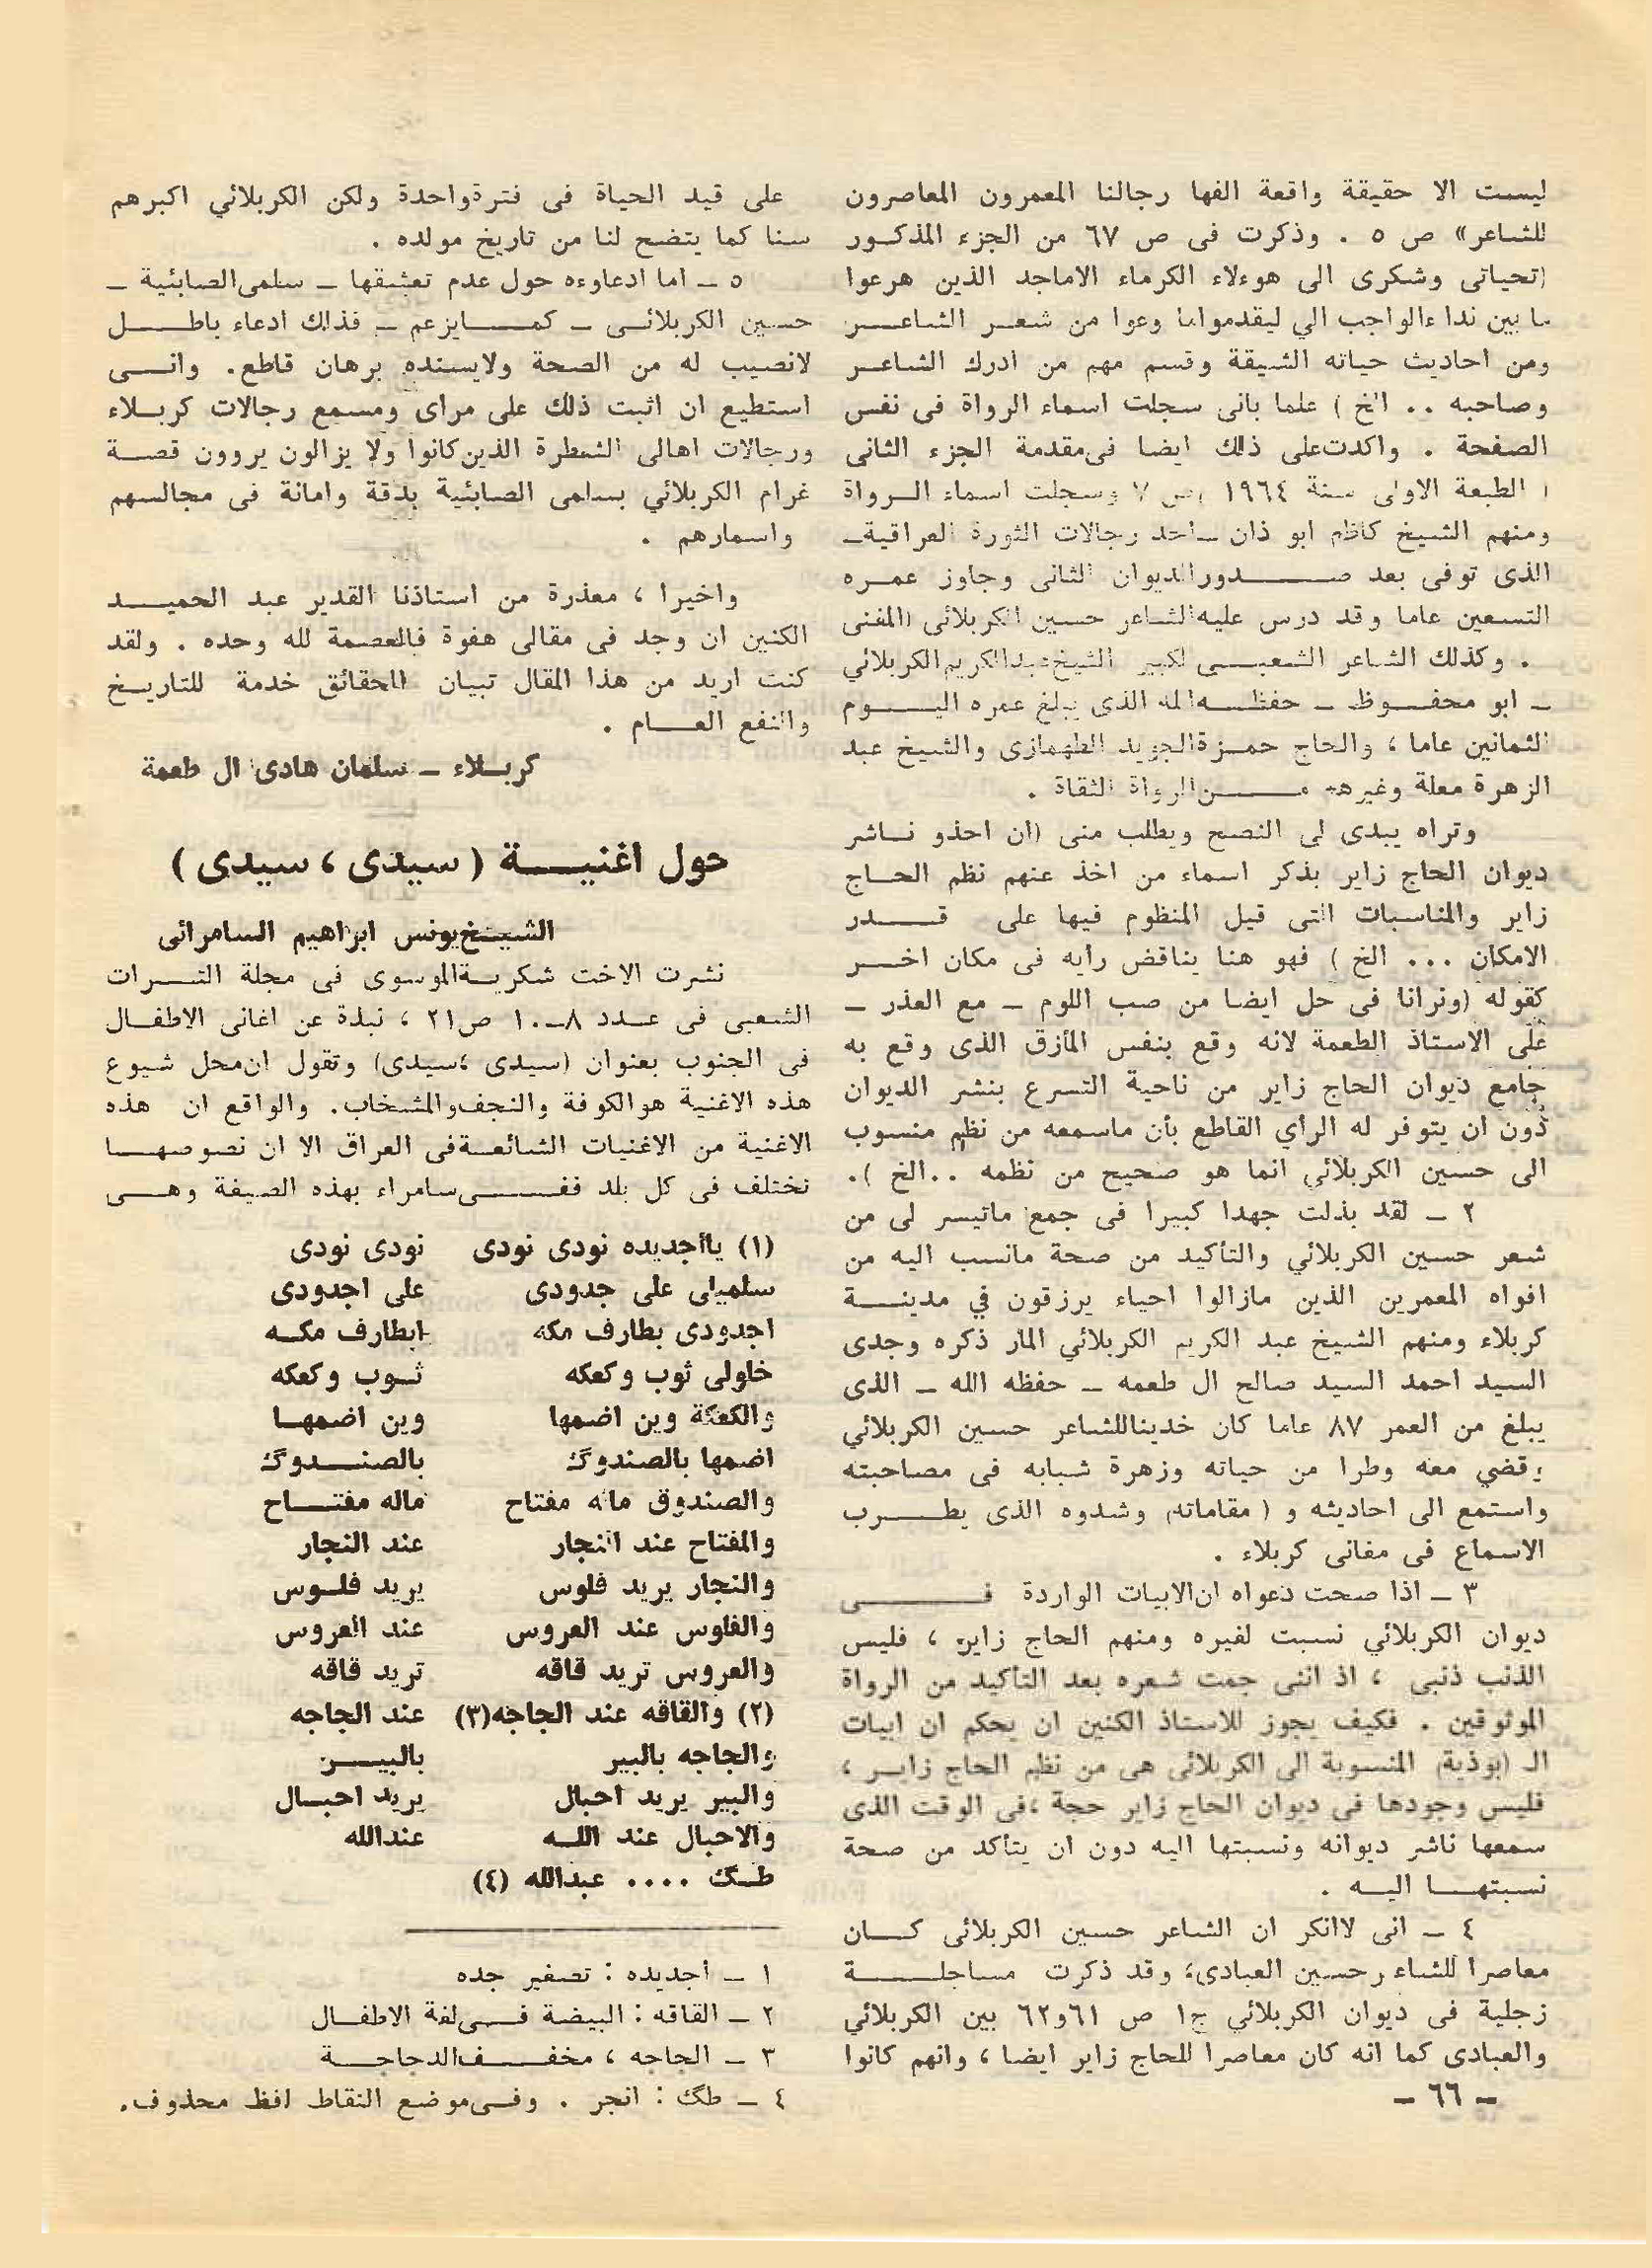 ليست الا حقيقة واقعة الفها رجالنا المعمرون المعاصرون
للشاعر» ص ٥ . وذكرت فى ص ٦٧ من الجزء المذكور
(تحياتى وشكرى الى هوءلاء الكرماء الاماجد الذين هرعوا
ما بين نداء الواجب الي ليقدموا ما وعوا من شعر الشاعر
ومن احاديث حياته الشيقة وقسم مهم من ادرك الشاعر
وصاحبه .. الخ ) علما بانى سجلت اسماء الرواة فى نفس
الصفحة . واكدت على ذلك ايضا فى مقدمة الجزء الثانى
( الطبعة الاولى سنة ١٩٦٤ ) ص ٧ وسجلت اسماء الرواة
ومنهم الشيخ كاظم ابو ذان - احد رجالات الثورة العراقية -
الذى توفى بعد صدور الديوان الثانى وجاوز عمره
التسعين عاما وقد درس عليه الشاعر حسين الكربلائى (المغنى
. وكذلك الشاعر الشعبى الكبير الشيخ عبدالكريم الكربلائي
- ابو محفوظ - حفظه الله الذى يبلغ عمره اليوم
الثمانين عاما ، والحاج حمزة الجويد الطهمازى والشيخ عبد
الزهرة معلة وغيرهم من الرواة الثقاة .
وتراه يبدى لى النصح ويطلب منى (ان احذو ناشر
ديوان الحاج زاير بذكر اسماء من اخذ عنهم نظم الحاج
زاير والمناسبات التى قيل المنظوم فيها على قدر
الامكان ... الخ ) فهو هنا يناقض رأيه فى مكان اخر
كقوله (ونرانا فى حل ايضا من صب اللوم - مع العذر -
على الاستاذ الطعمة لانه وقع بنفس المأزق الذى وقع به
جامع ديوان الحاج زاير من ناحية التسرع بنشر الديوان
دون ان يتوفر له الرأي القاطع بأن ماسمعه من نظم منسوب
الى حسين الكربلائي انما هو صحيح من نظمه ..الخ ).
٢ - لقد بذلت جهدا كبيرا فى جمع ماتيسر لى من
شعر حسين الكربلائي والتأكيد من صحة مانسب اليه من
افواه المعمرين الذين مازالوا احياء يرزقون في مدينة
كربلاء ومنهم الشيخ عبد الكريم الكربلائي المار ذكره وجدى
السيد احمد السيد صالح ال طعمه - حفظه الله - الذى
يبلغ من العمر ٨٧ عاما كان خديناللشاعر حسين الكربلائي
وقضي معه وطرا من حياته وزهرة شبابه فى مصاحبته
واستمع الى احاديثه و ( مقاماته) وشدوه الذى يطرب
الاسماع فى مغانى كربلاء .
٣ - اذا صحت دعواه ان الابيات الواردة فى
ديوان الكربلائي نسبت لغيره ومنهم الحاج زاير ، فليس
الذنب ذنبى ، اذ اننى جمت شعره بعد التأكيد من الرواة
الموثوقين . فكيف يجوز للاستاذ الكنين ان يحكم ان ابيات
الـ (بوذية) المنسوبة الى الكربلائى هى من نظم الحاج زاير ،
فليس وجودها فى ديوان الحاج زاير حجة ،فى الوقت الذى
سمعها ناشر ديوانه ونسبتها اليه دون ان يتأكد من صحة
نسبتها اليه .
٤ - انى لاانكر ان الشاعر حسين الكربلائى كان
معاصرا للشاعر حسين العبادى، وقد ذكرت مساجلة
زجلية فى ديوان الكربلائي ج١ ص ٦١و٦٢ بين الكربلائي
والعبادى كما انه كان معاصرا للحاج زاير ايضا ، وانهم كانوا
- ٦٦ -
على قيد الحياة فى فترةواحدة ولكن الكربلائي اكبرهم
سنا كما يتضح لنا من تاريخ مولده .
٥ - اما ادعاوءه حول عدم تعشقها - سلمى الصابئية -
حسين الكربلائى - كما يزعم - فذلك ادعاء باطل
لانصيب له من الصحة ولايسنده برهان قاطع. وانى
استطيع ان اثبت ذلك على مراى ومسمع رجالات كربلاء
ورجالات اهالى الشطرة الذين كانوا ولا يزالون يروون قصة
غرام الكربلائي بسلمى الصابئية بدقة وامانة فى مجالسهم
واسمارهم .
واخيرا ، معذرة من استاذنا القدير عبد الحميد
الكنين ان وجد فى مقالى هفوة فالعصمة لله وحده . ولقد
كنت اريد من هذا المقال تبيان الحقائق خدمة للتاريخ
والنفع العام .
كربلاء - سلمان هادى ال طعمة
حول اغنية ( سيدى ، سيدى )
الشيخ يونس ابراهيم السامرائى
نشرت الاخت شكرية الموسوى فى مجلة التراث
الشعبى فى عدد ٨-١٠ ص٢١ ، نبذة عن اغانى الاطفال
فى الجنوب بعنوان (سيدى ،سيدى) وتقول ان محل شيوع
هذه الاغنية هو الكوفة والنجف والمشخاب. والواقع ان هذه
الاغنية من الاغنيات الشائعة فى العراق الا ان نصوصها
تختلف فى كل بلد ففى سامراء بهذه الصيغة وهى
(١) ياأجديده نودى نودى نودى نودى
سلميلى على جدودى على اجدودى
اجدودى بطارف مكه ابطارف مكه
خاولى ثوب وكعكه ثوب وكعكه
والكعكة وين اضمها وين اضمها
اضمها بالصندوگ بالصندوگ
والصندوق ماله مفتاح ماله مفتاح
والمفتاح عند النجار عند النجار
والنجار يريد فلوس يريد فلوس
والفلوس عند العروس عند العروس
والعروس تريد قاقه تريد قاقه
(٢) والقاقه عند الجاجه(٣) عند الجاجه
والجاجه بالبير بالبير
والبير يريد احبال يريد احبال
والاحبال عند الله عندالله
طگ .... عبدالله (٤)
١ - أجديده : تصغير جده
٢ - القاقه : البيضة فى لغة الاطفال
٣ - الجاجه ، مخفف الدجاجة
٤ - طگ : انجر . وفى موضع النقاط لفظ محذوف.